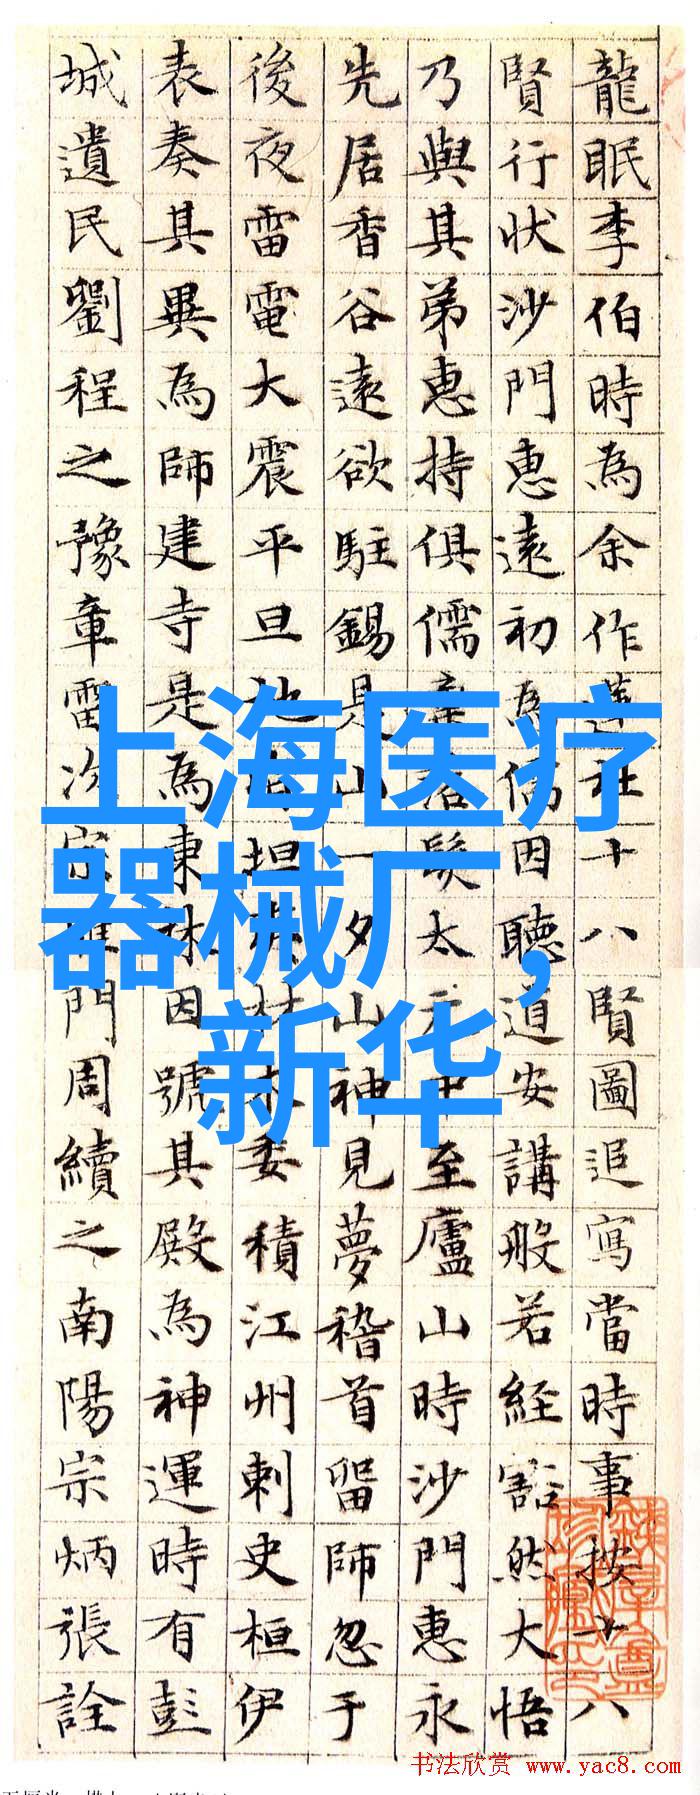 龍眠李伯時為余作蓮社十八賢圖追寫當時事按十八
賢行狀沙門惠遠初為儒因聽道安講般若經豁然大悟
乃與其弟惠持俱儒棄落髮太元中至廬山時沙門惠永
先居香谷遠欲駐錫見山一夕山神見夢稽首留師忽于
後夜雷電大震平旦地皆坦夷材木委積江州刺史桓伊
表奏其異為師建寺是為東林因號其殿為神運時有彭
城遺民劉程之豫章雷次宗雁門周續之南陽宗炳張詮
上海医疗
器械厂,
新华
书法欣赏 www.yac8.com